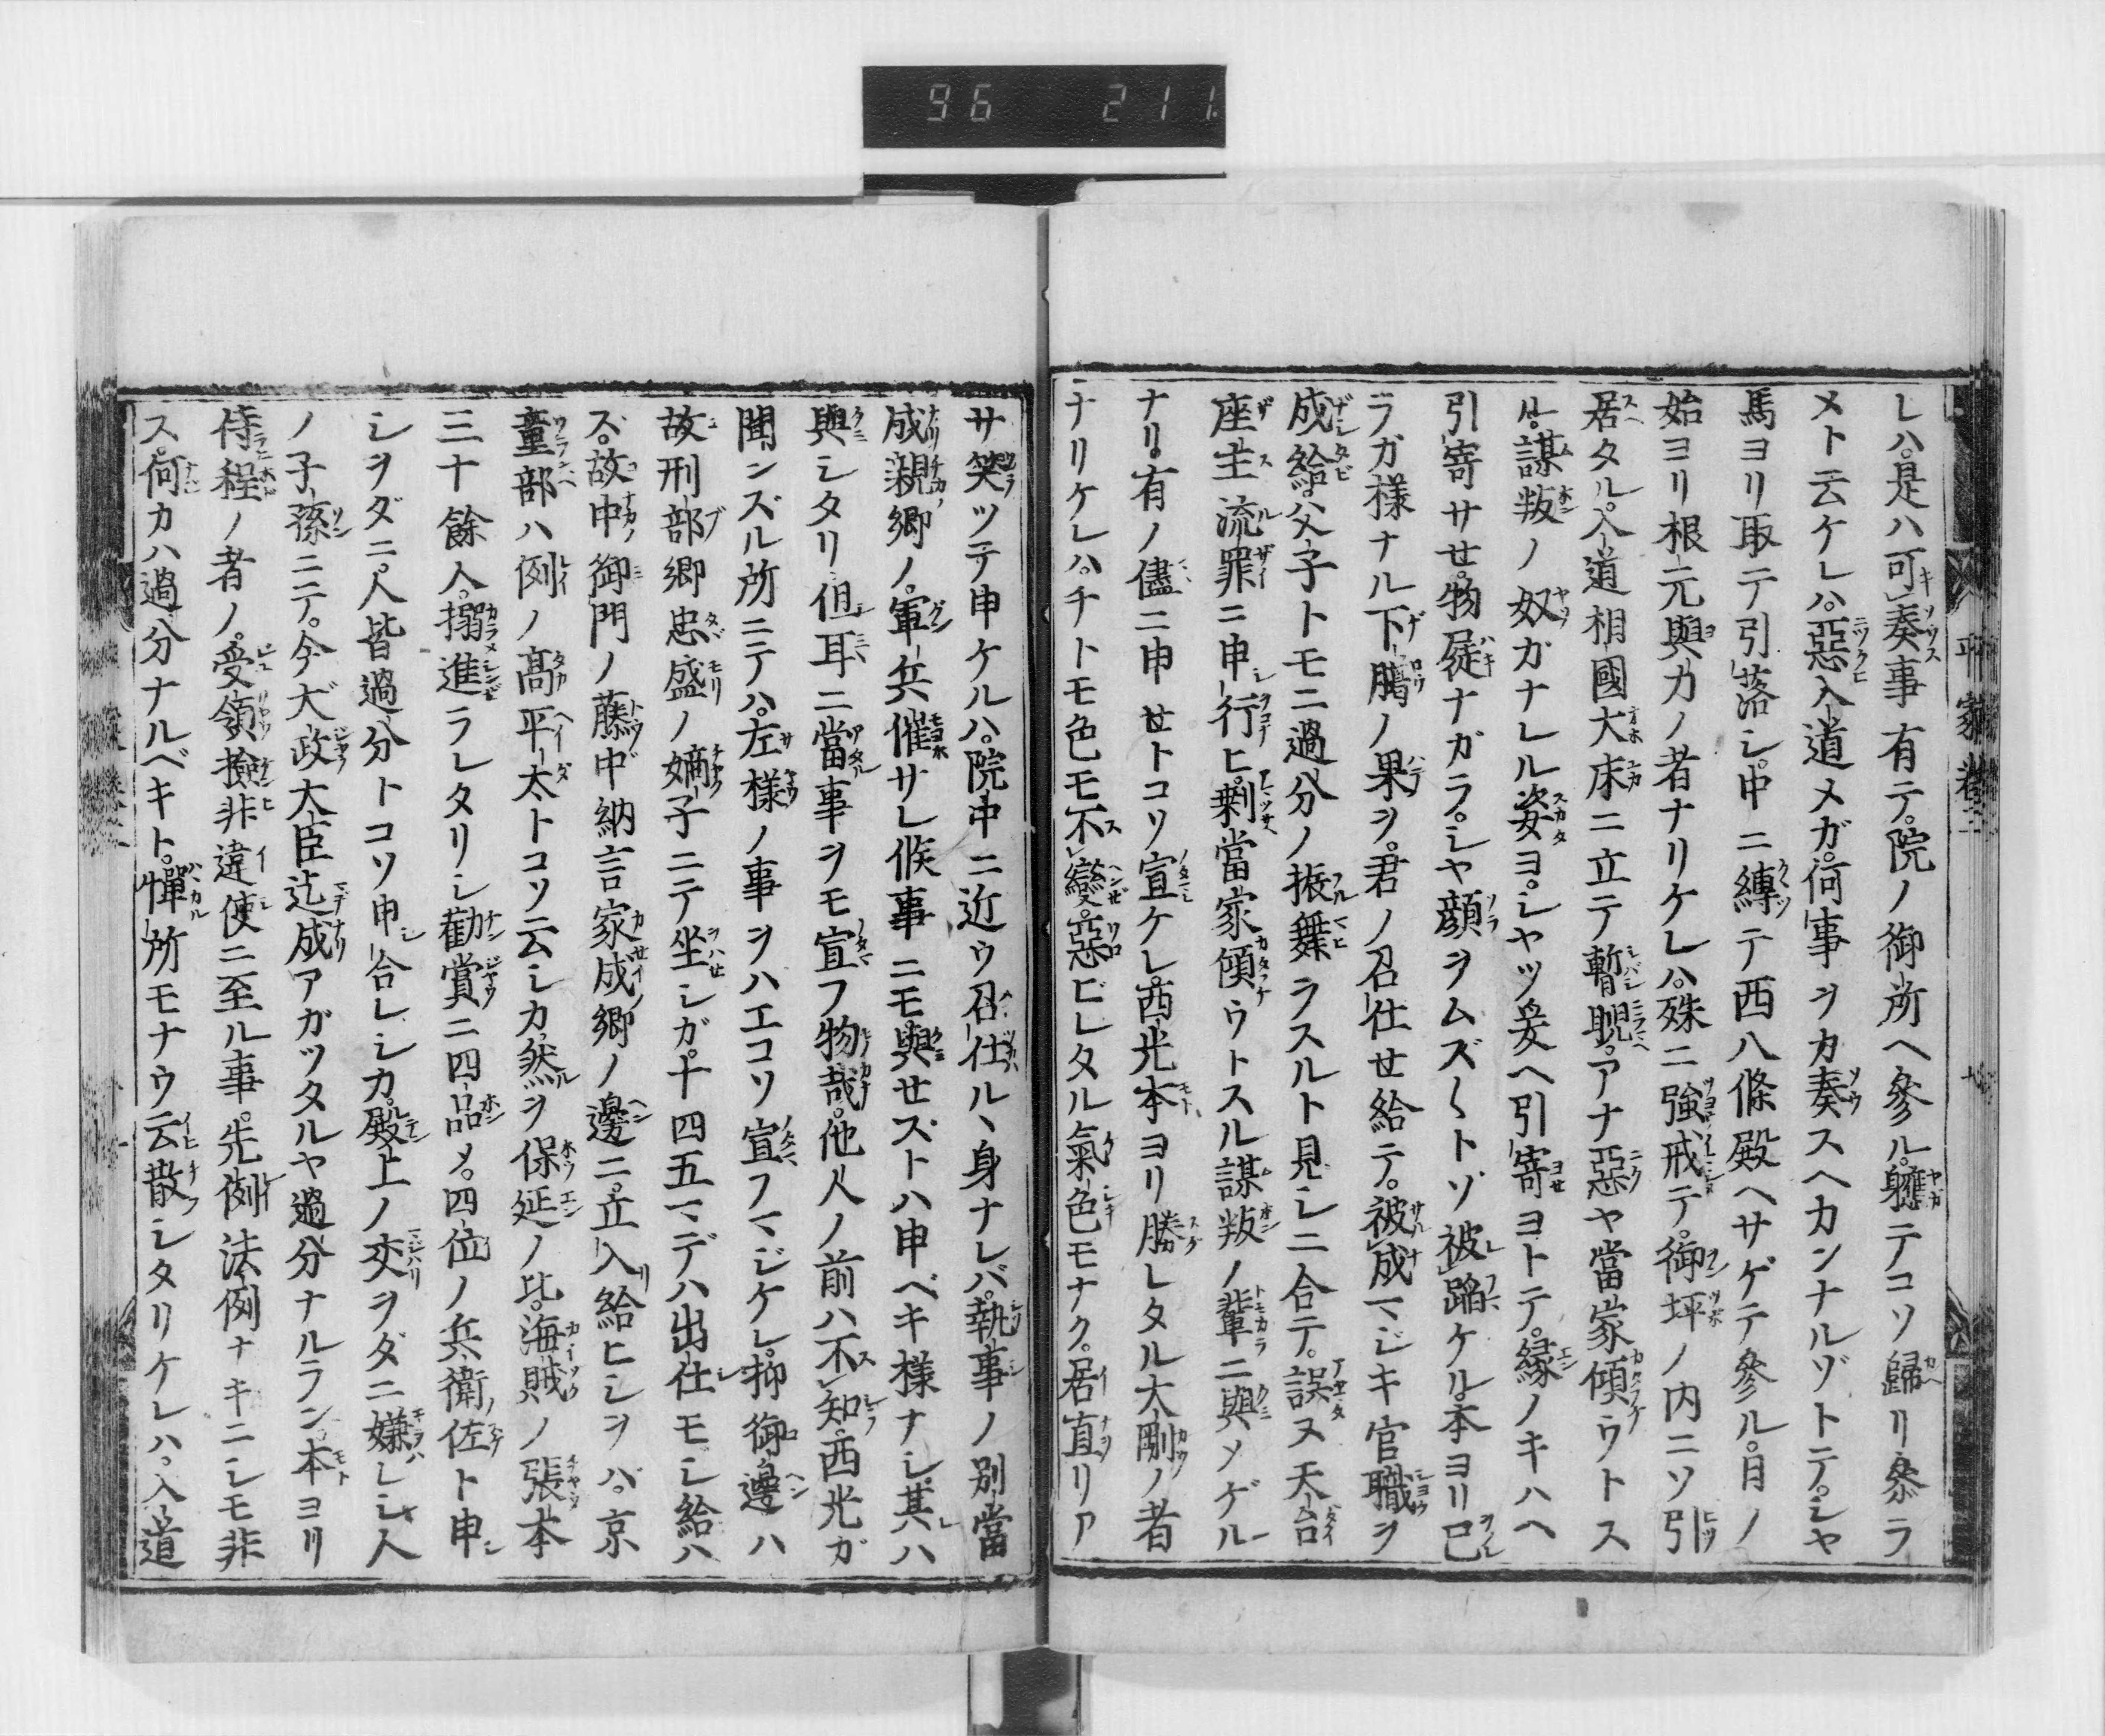 96 211
レハ。是ハ可奏事有テ。院ノ御所ヘ參ル。軈テコソ歸リ參ラ
メト云ケレハ。惡入道メガ。何事ヲカ奏スヘカンナルゾトテ。シヤ
馬ヨリ取テ引落シ。中ニ縛テ西八條殿ヘサゲテ參ル。日ノ
始ヨリ根元與力ノ者ナリケレハ。殊ニ強戒テ。御坪ノ内ニソ引
居タル。入道相國大床ニ立テ暫睨。アナ惡ヤ當家傾ウトス
ル。謀叛ノ奴ガナレル姿ヨ。シヤツ爰ヘ引寄ヨトテ。縁ノキハヘ
引寄サセ。物屣ナガラ。シヤ顔ヲムズ〱トゾ被蹈ケル。本ヨリ己
ラガ様ナル下臈ノ果ヲ。君ノ召仕せ給テ。被成マジキ官職ヲ
成給。父子トモニ過分ノ振舞ラスルト見シニ合テ。誤ヌ天台
座主流罪ニ申行ヒ。剰當家傾ウトスル謀叛ノ輩ニ與メゲル
ナリ。有ノ儘ニ申セトコソ宣ケレ。西光本ヨリ勝レタル大剛ノ者
ナリケレハ。チトモ色モ不變。惡ビレタル氣色モナク。居直リア
サ笑ツテ申ケルハ。院中ニ近ウ召仕ルヽ身ナレバ。執事ノ別當
成親卿ノ。軍兵催サレ候事ニモ與せズトハ申ベキ様ナシ。其ハ
與シタリ。但耳ニ當事ヲモ宣フ物哉。他人ノ前ハ不知。西光ガ
聞ンズル所ニテハ。左様ノ事ヲハエコソ宣フマジケレ。抑御邊ハ
故刑部卿忠盛ノ嫡子ニテ坐シガ。十四五マデハ出仕モシ給ハ
ズ。故中御門ノ藤中納言家成卿ノ邊ニ。立入給ヒシヲバ。京
童部ハ例ノ髙平太トコソ云シカ。然ヲ保延ノ比。海賊ノ張本
三十餘人。搦進ラレタリシ勸賞ニ四品メ。四位ノ兵衛佐ト申
シヲダニ。人皆過分トコソ申合レシカ。殿上ノ交ヲダニ嫌レシ人
ノ子孫ニテ。今太政大臣迠成アガツタルヤ過分ナルラン。本ヨリ
侍程ノ者ノ。受領撿非違使ニ至ル事。先例法例ナキニシモ非
ス。何カハ過分ナルベキト。憚所モナウ云散シタリケレハ。入道